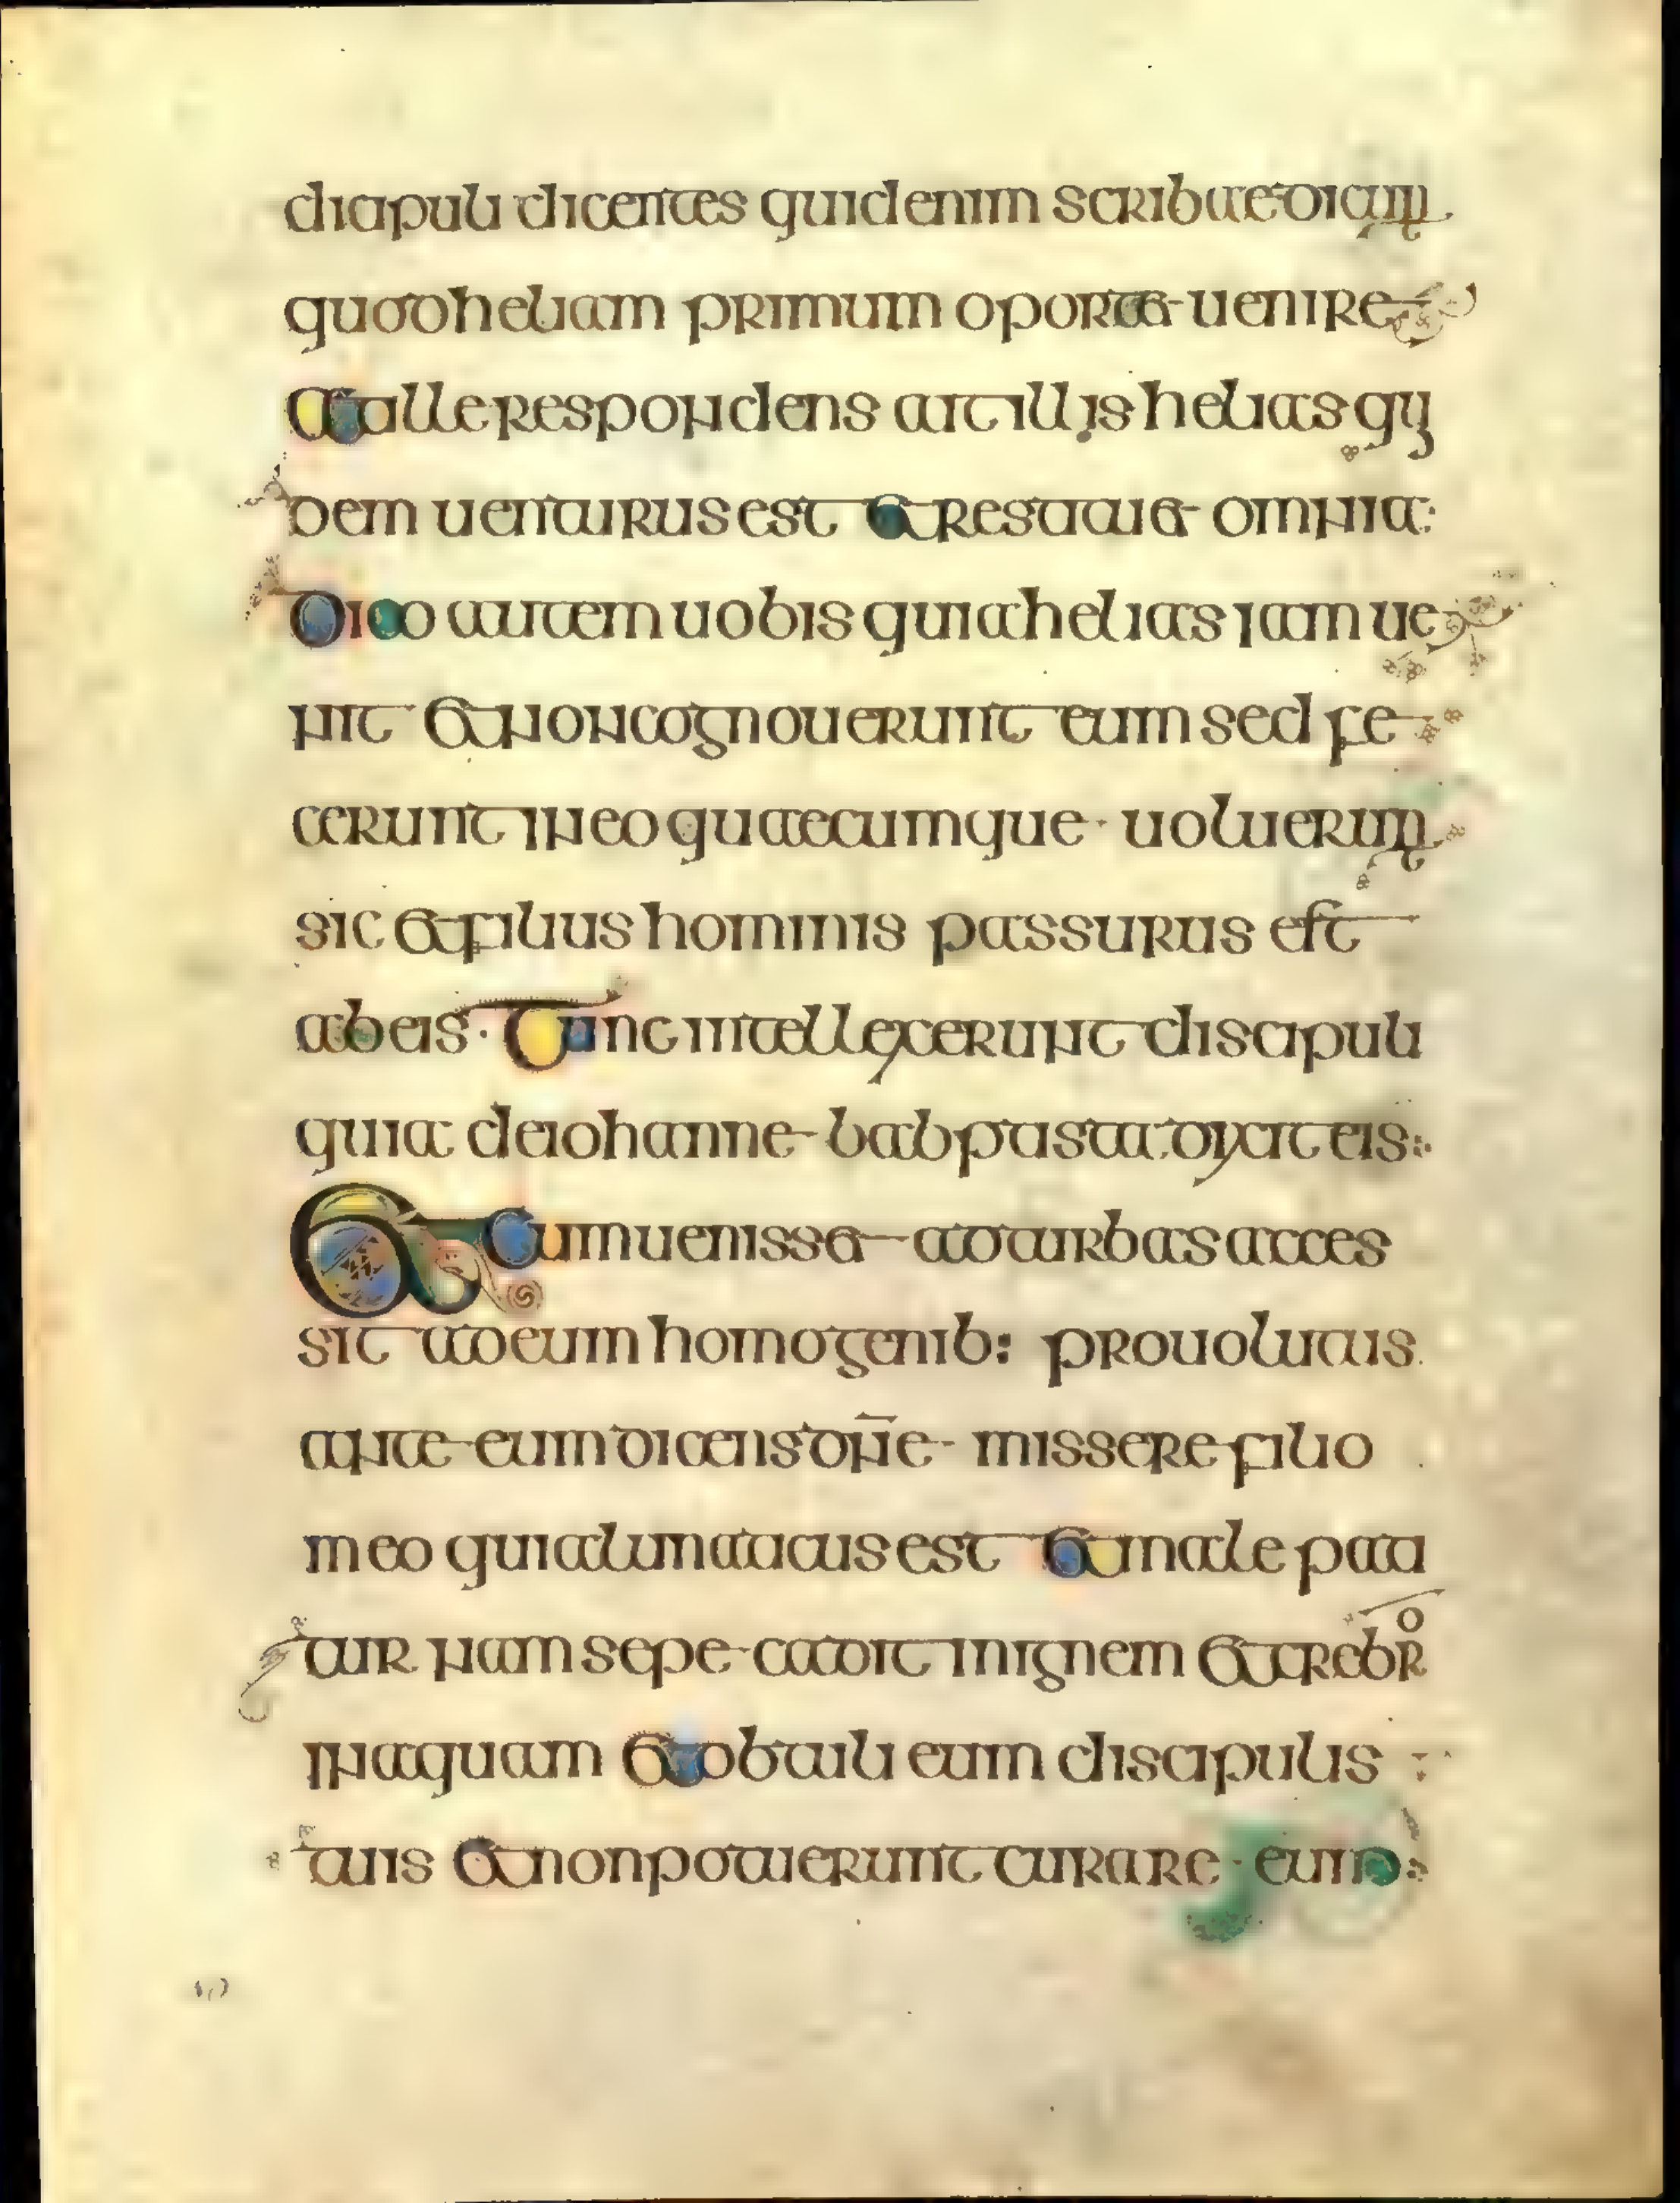 dicipuli dicentes quid enim scribae dicunt
quod heliam primum oportet uenire
At ille respondens ait illis helias qui
dem uenturus est et restituet omnia:
Dico autem uobis quia helias iam ue
nit et non cognouerunt eum sed fe
cerunt in eo quaecumque · uoluerunt
sic et filius hominis passurus est
ab eis · Tunc intellexerunt discipuli
quia de iohanne babptista dixit eis:
Et cum uenisset ad turbas acces
sit ad eum homo genib: prouolutis
ante eum dicens dñe missere filio
meo quia lunaticus est et male pati
tur nam sepe cadit in ignem et crebro
in aquam et obtuli eum discipulis
tuis et non potuerunt curare · eum: